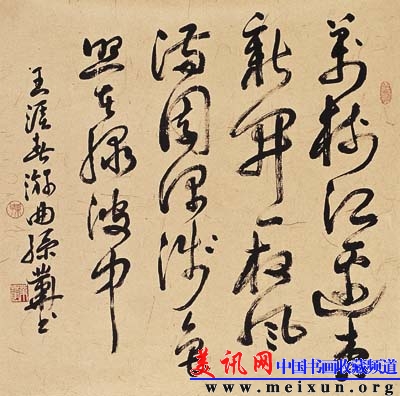 萬樹江邊杏
新開一夜風
滿園深淺色
照在綠波中
王涯春游曲孫書
美讯网 中国书画收藏频道
www.meixun.org